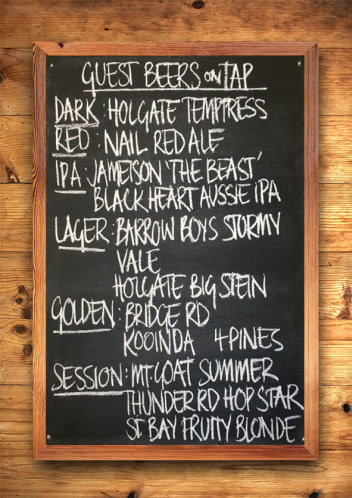 GUEST BEERS ON TAP
DARK: HOLGATE TEMPTRESS
RED: NAIL RED ALE
IPA: JAMEISON 'THE BEAST'
BLACK HEART AUSSIE IPA
LAGER: BARROW BOYS STORMY
VALE
HOLGATE BIG STEIN
GOLDEN: BRIDGE RD
KOOINDA 4 PINES
SESSION: MT. GOAT SUMMER
THUNDER RD HOP STAR
ST BAY FRUITY BLONDE